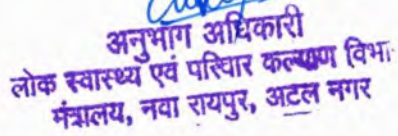 अनुभाग अधिकारी
लोक स्वास्थ्य एवं परिवार कल्याण विभा
मंत्रालय, नवा रायपुर, अटल नगर